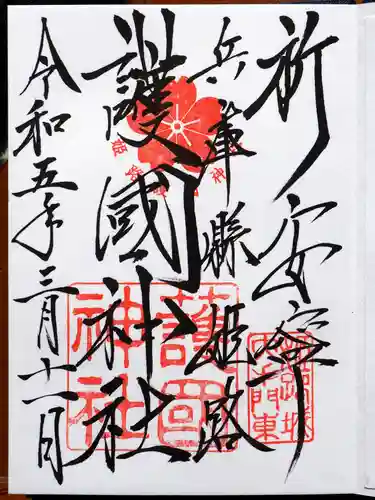 祈安寧
兵庫縣姫路
護國神社
令和五年三月十一日
護國
神社
姫路城